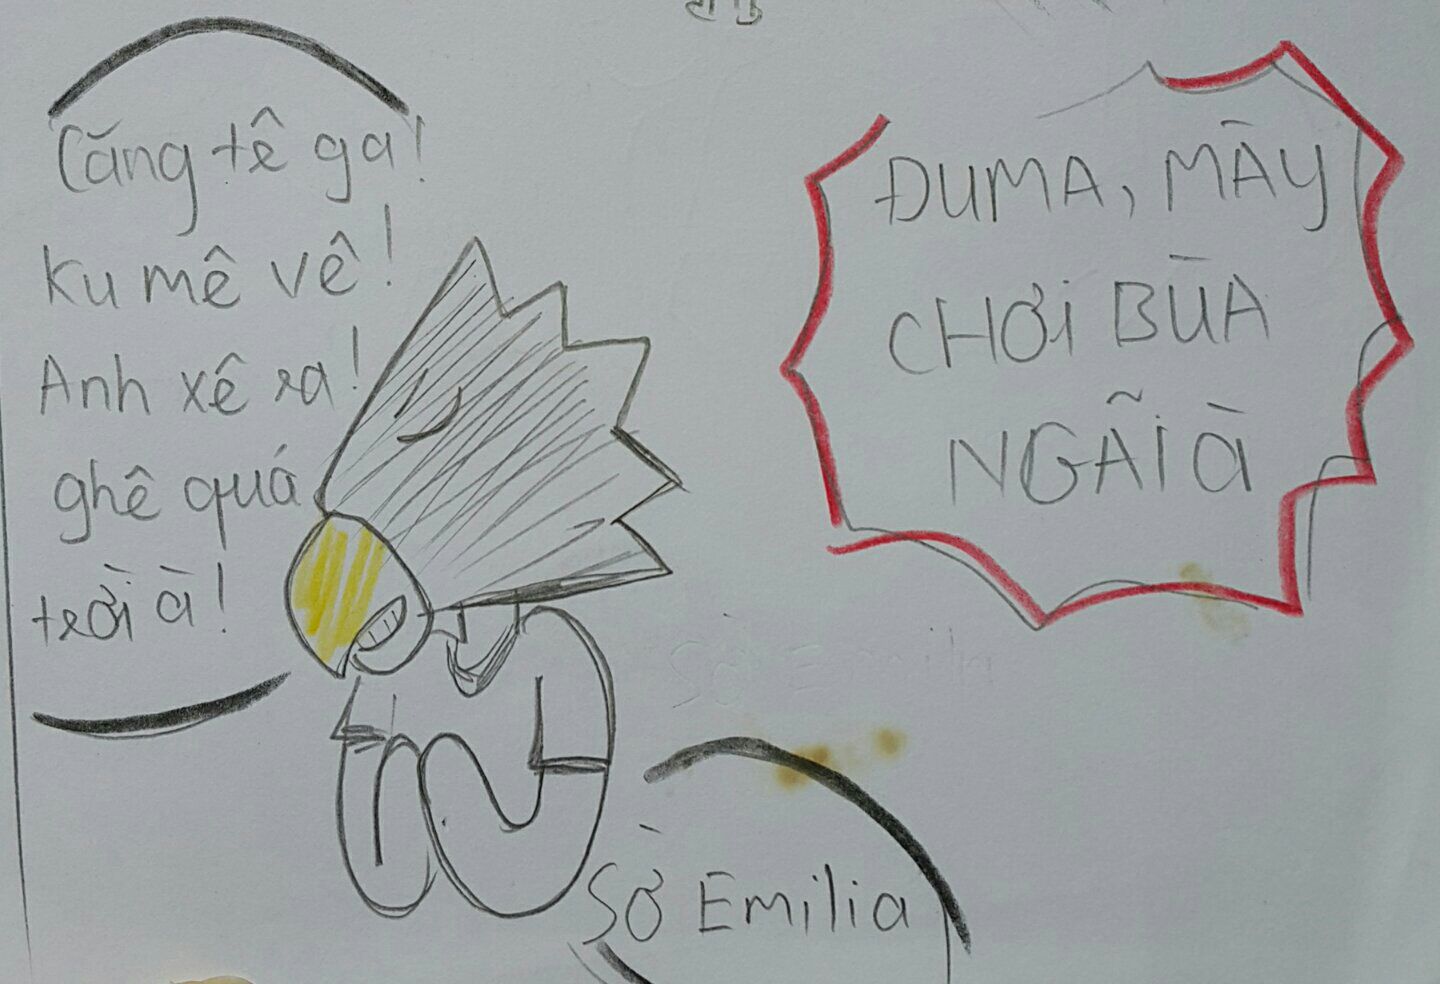 Căng tê ga!
Ku mê vê!
Anh xê ra!
ghê quá
trời à!
ĐUMA, MÀY
CHƠI BÙA
NGÃI À
Sờ Emilia